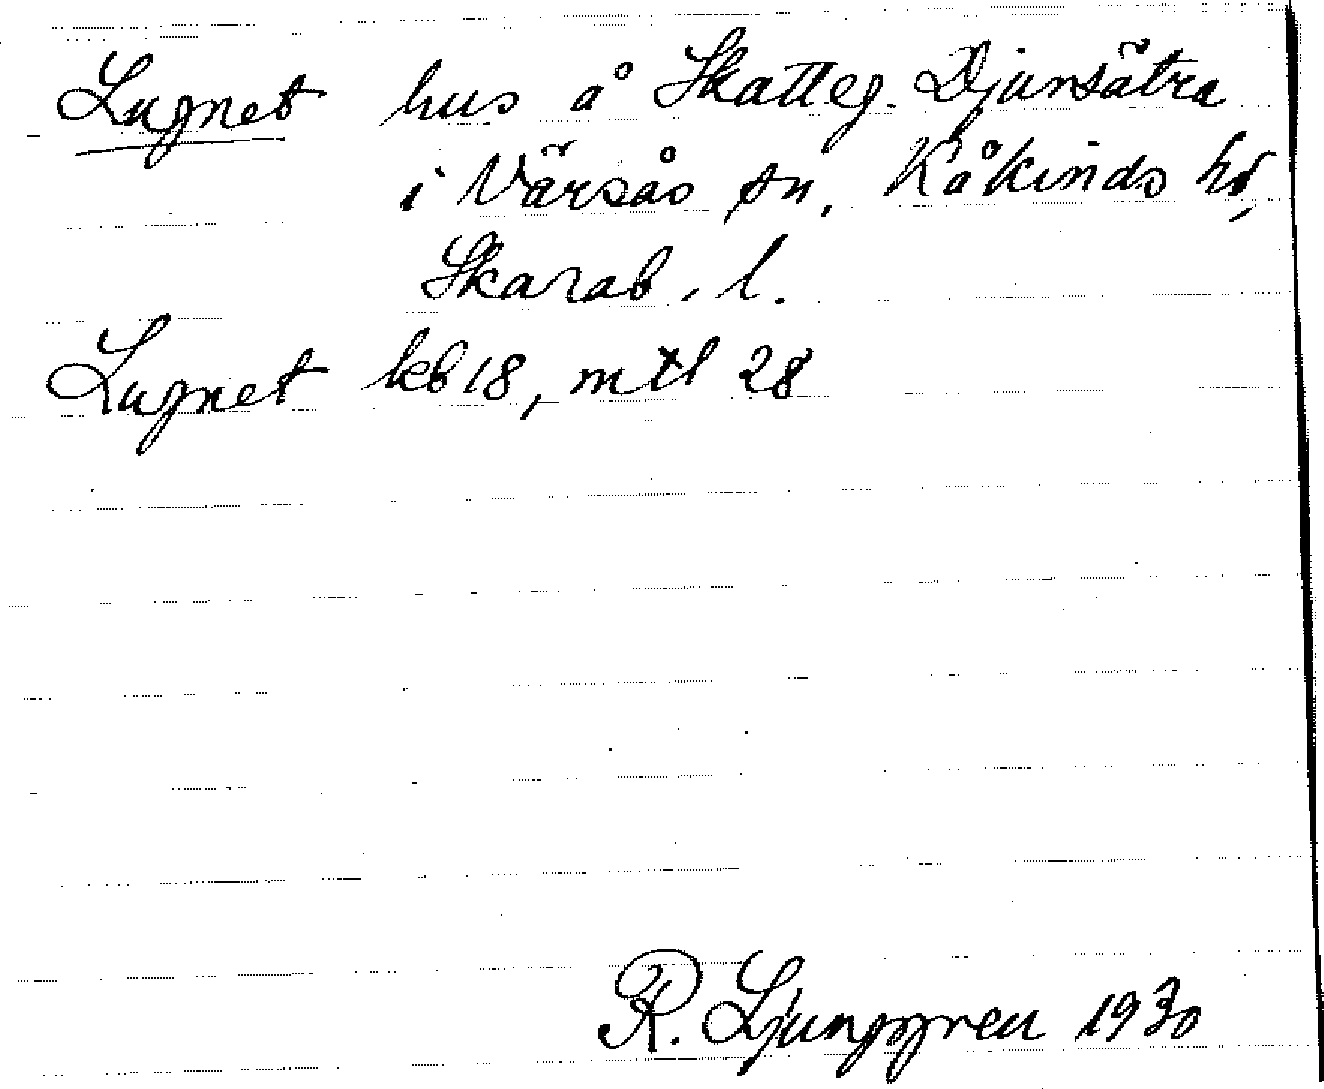 Lugnet hus å Skatteg. Djursätra
i Värsås sn, Kåkinds hd,
Skarab. l.
Lugnet kb 18, mtl 28
R. Ljunggren 1930